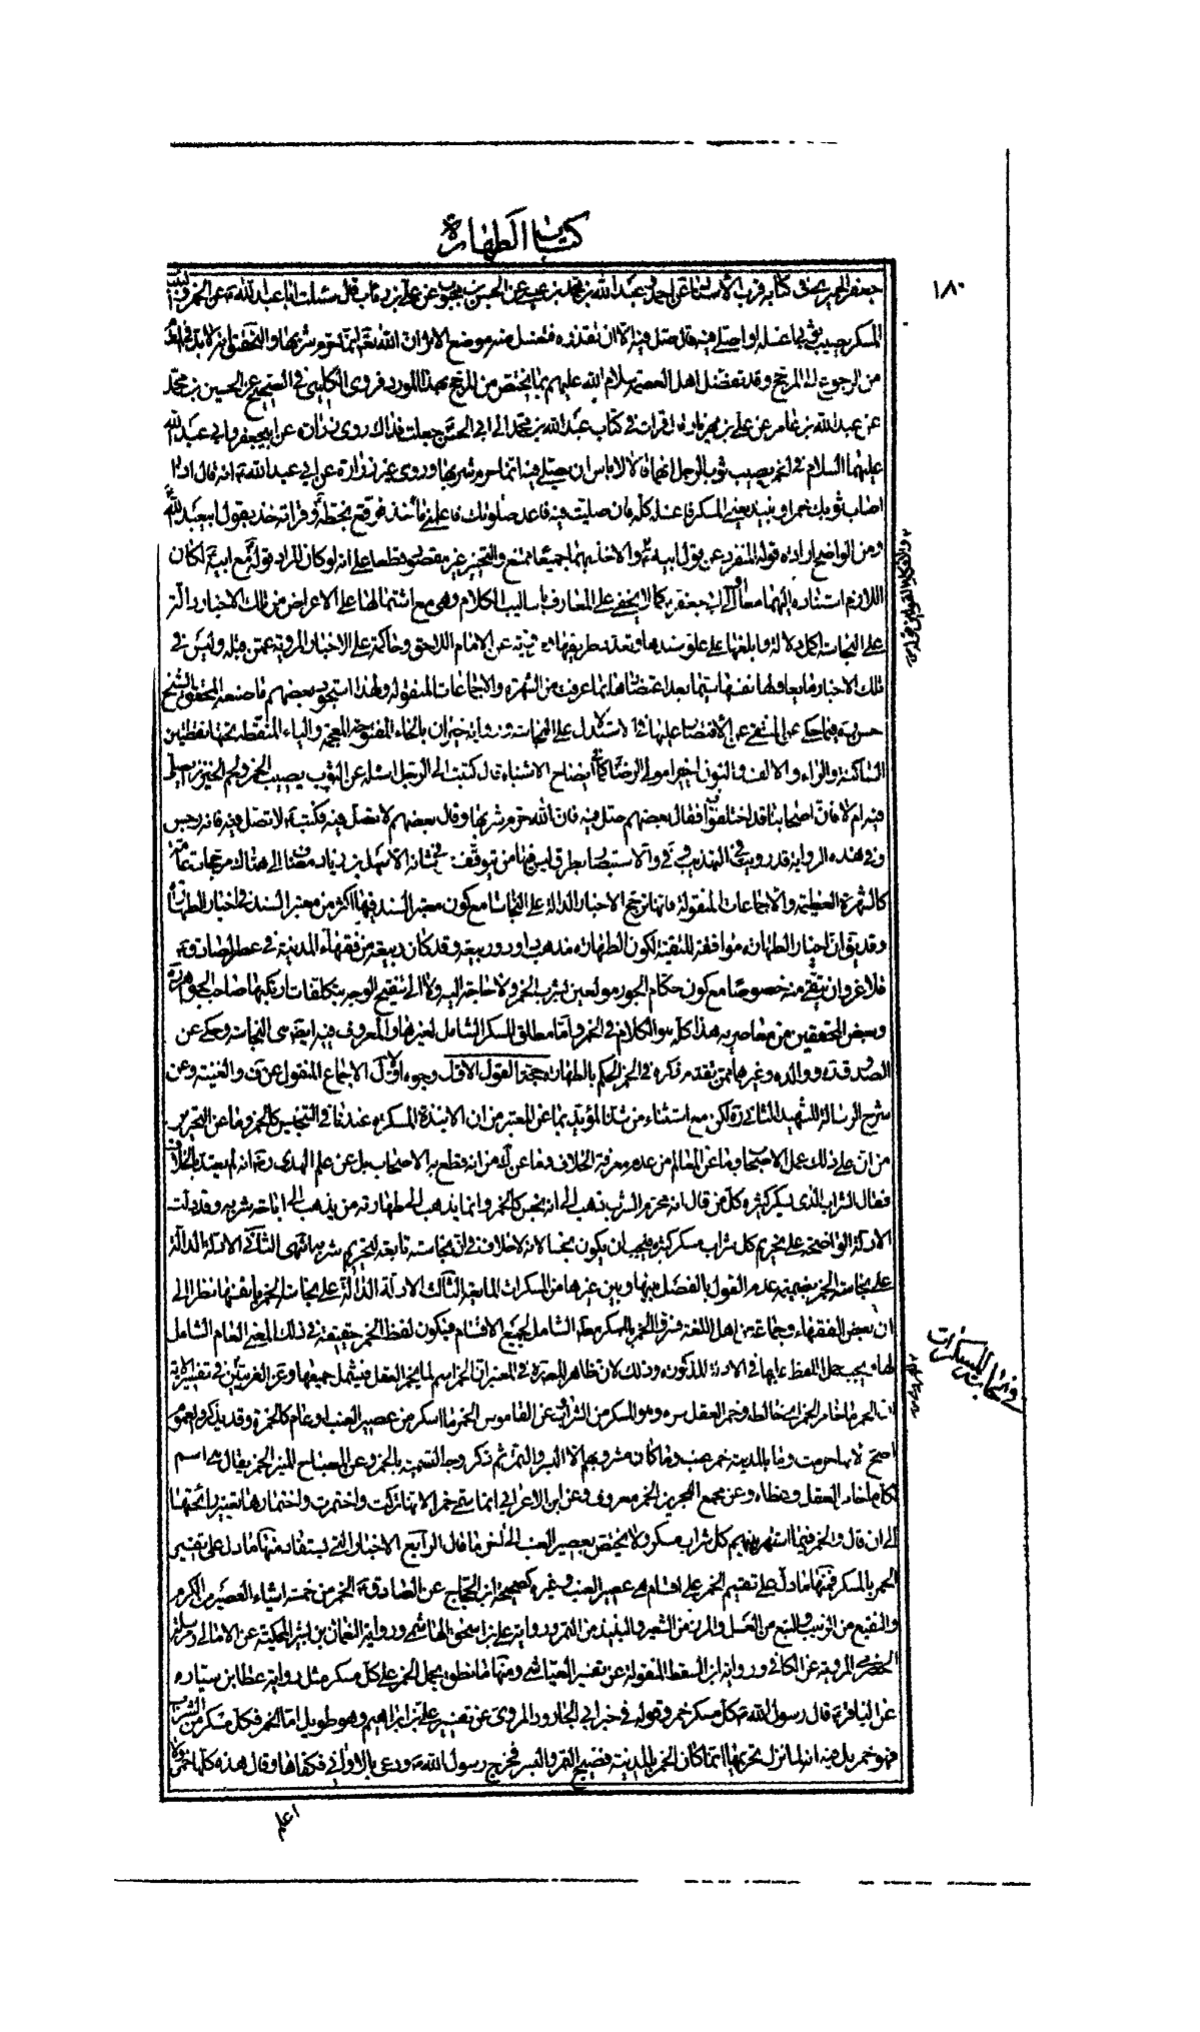 كتاب الطهارة
١٨٠
جعفر الحميري في كتابه قرب الأسناد عن احمد بن عبد الله بن محمد بن عيسى عن الحسن بن محبوب عن علي بن رئاب قال سئلت ابا عبد الله عن الخمر والنبيذ
المسكر يصيب ثوبي اغسله او اصلي فيه قال صل فيه الا ان تقذره فتغسل منه موضع الاثر ان الله تعالى انما حرم شربها والتحقيق انه لا بد
من الرجوع الى المرجح وقد تفضل اهل العصمة سلام الله عليهم بما يختص من المرجح بهذا المورد فروى الكليني في الصحيح عن الحسين بن محمد
عن عبد الله بن عامر عن علي بن مهزيار قال قرات في كتاب عبد الله بن محمد الى ابي الحسن جعلت فداك روى زرارة عن ابي جعفر وابي عبد الله
عليهما السلام في الخمر يصيب ثوب الرجل انهما قالا لا باس ان يصلي فيه انما حرم شربها وروى غير زرارة عن ابي عبد الله انه قال اذا
اصاب ثوبك خمر او نبيذ يعني المسكر فاغسله كله وان صليت فيه فاعد صلوتك فاعلمني ما آخذ به فوقع بخطه وقراته خذ بقول ابي عبد الله
ومن الواضح ارادة قوله المنفرد عن قول ابيه والاخذ بهما جميعا ممتنع والتخيير غير مقصود قطعا على انه لو كان المراد قوله مع ابيه لكان
اللازم اسناده اليهما معا او الى ابي جعفر كما لا يخفى على العارف باساليب الكلام وهي مع اشتمالها على الاعراض من تلك الاخبار دالة
على النجاسة اكمل دلالة وابلغها على علو سندها وتعدد طريقها عن الامام اللاحق وحاكمة على الاخبار المروية عمن قبله وليس في
تلك الاخبار ما يعادلها نفسها سيما بعد اعتضادها بما عرفت من الشهرة والاجماعات المنقولة ولهذا استجود بعضهم ما صنعه المحقق الشيخ
حسن فيما حكي عن المنتقى عن الاقتصار عليها في الاستدلال على النجاسة ورواية خيران بالخاء المفتوحة المعجمة والياء المنقطة تحتها نقطتين
الساكنة والراء والالف والنون اخيرا مولى الرضا كما عن ايضاح الاشتباه قال كتبت الى الرجل اسئله عن الثوب يصيب الخمر ولحم الخنزير ايصلي
فيه ام لا فان اصحابنا قد اختلفوا فقال بعضهم صل فيه فان الله حرم شربها وقال بعضهم لا تصل فيه فكتب لا تصل فيه فانه رجس
وفي هذه الرواية قد رويت في التهذيب وفي والاستبصار بطرق ليس فيها من توقف في شانه الا سهل بن زياد مضافا الى هناك مرجحات عامة
كالشهرة العظيمة والاجماعات المنقولة فانها ترجح الاخبار الدالة على النجاسة مع كون معتبر السند فيها اكثر من معتبر السند في اخبار الطهارة
وقد يق ان اخبار الطهارة موافقة للتقية لكون الطهارة مذهب داود وربيعة وقد كان ربيعة من فقهاء المدينة في عصر الصادق
فلا غرو ان يتقى منه خصوصا مع كون حكام الجور مولعين بشرب الخمر ولا حاجة اليه ولا الى تنقيح الوجه بتكلفات ارتكبها صاحب الجواهر
وبعض المحققين من معاصريه هذا كله هو الكلام في الخمر واما مطلق المسكر الشامل لغيرها والمعروف فيه ايضا هي النجاسة وحكى عن
الصدوق ووالده وغيرهما ممن تقدم ذكره في الخمر الحكم بالطهارة حجة القول الاول وجوه الاول الاجماع المنقول عن ف والغنية وعن
شرح الرسالة للشهيد الثاني لكن مع استثناء من شذ المؤيد بما عن المعتبر من ان الانبذة المسكرة عندنا في التنجيس كالخمر وما عن التحرير
من ان على ذلك عمل الاصحاب وما عن المعالم من عدم معرفة الخلاف وما عن ئق من انه قطع به الاصحاب بل عن علم الهدى انه لم يعتد بالخلاف
فقال الشراب الذي يسكر كثيره كل من قال انه محرم الشرب ذهب الى انه نجس كالخمر وانما يذهب الى طهارته من يذهب الى اباحة شربه وقد دلت
الادلة الواضحة على تحريم كل شراب مسكر كثيره فيجب ان يكون نجسا لانه لا خلاف في ان نجاسته تابعة لتحريم شربه انتهى الثاني الادلة الدالة
على نجاسة الخمر بضميمة عدم القول بالفصل بينها وبين غيرها من المسكرات المايعة الثالث الادلة الدالة على نجاسة الخمر بنفسها نظرا الى
ان بعض الفقهاء وجماعة من اهل اللغة فسرو الخمر بالمسكر مطلقا الشامل لجميع الاقسام فيكون لفظ الخمر حقيقة في ذلك المعنى العام الشامل
لها ويجب حمل اللفظ عليها في الادلة المذكورة وذلك لان ظاهر المعتبر ان الخمر اسم لما يخمر العقل فيشمل جميعها وعن الغريبين في تفسير الاية
ان الخمر ما خامر العقل اي خالطه وخمر العقل ستره وهو المسكر من الشراب وعن القاموس الخمر ما اسكر من عصير العنب او عام كالخمرة وقد يذكر والعموم
اصح لانها حرمت وما بالمدينة خمر عنب وما كان مشروبهم الا البسر والتمر ثم ذكر وجه التسمية بالخمر وعن المصباح المنير الخمر يقال هي اسم
لكل ما خامر العقل وغطاه وعن مجمع البحرين الخمر معروف وعن ابن الاعرابي انما سمي خمرا لانها تركت واختمرت واختمارها تغيير رائحتها
الى ان قال والخمر فيما اشتهر بينهم كل شراب مسكر ولا يختص بعصير العنب الى اخر ما قال الرابع الاخبار التي يستفاد منها ما دل على تفسير
الخمر بالمسكر فمنها ما دل على تقسيم الخمر على اقسام هي عصير العنب وغيره كصحيحة ابن الحجاج عن الصادق الخمر من خمسة اشياء العصير من الكرم
والنقيع من الزبيب والبتع من العسل والمزر من الشعير والنبيذ من التمر ورواية علي بن اسحق الهاشمي ورواية النعمان بن بشير المحكية عن الامالي ومرسلة
الحضرمي المروية عن الكافي ورواية ابن السقط المنقولة عن تفسير العياشي ومنها ما نطق بحمل الخمر على كل مسكر مثل رواية عطا بن سيارة
عن الباقر قال رسول الله كل مسكر خمر وقوله في خبر ابي الجارود المروي عن تفسير علي بن ابراهيم وهو طويل اما الخمر فكل مسكر من الشراب
فهو خمر بل فيه انه لما نزل تحريمها انما كان الخمر بالمدينة فضيخ التمر والبسر فخرج رسول الله ودعى بالاواني فكفاها وقال هذه كلها خمر ولا
اعلم
في نجاسة المسكرات